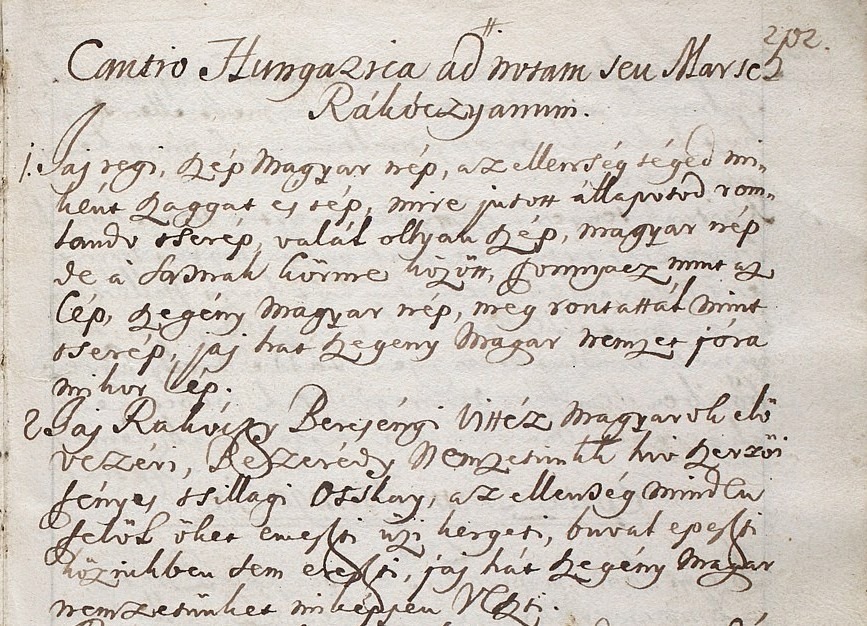 202.
Cantio Hungarica ad notam seu Marsch
Rákóczyanum.
1. Jaj regi, szép Magyar nép, az ellenség téged mi-
ként szaggat és tép, mire jutott állapotod rom-
lando tserép, valál ollyan szép, magyar nép
de á Sasnak körme között, fonnyacz mint az
Lép, szegény Magyar nép, meg rontattál mint
tserép, jaj hat szegeny Magar nemzet jóra
mikor lép.
2. Jaj Rakóczy Beresényi Vittéz Magyarok elö
vezéri, Beszerédy Nemzetünk hiv szerzöi
fényes tsillagi Osskay, az ellenség minden
felöl öket emeszti üzi kergeti, buval epeszti
közinkben sem ereszti, jaj hát szegény Magar
nemzetünket miképpen Veszti.